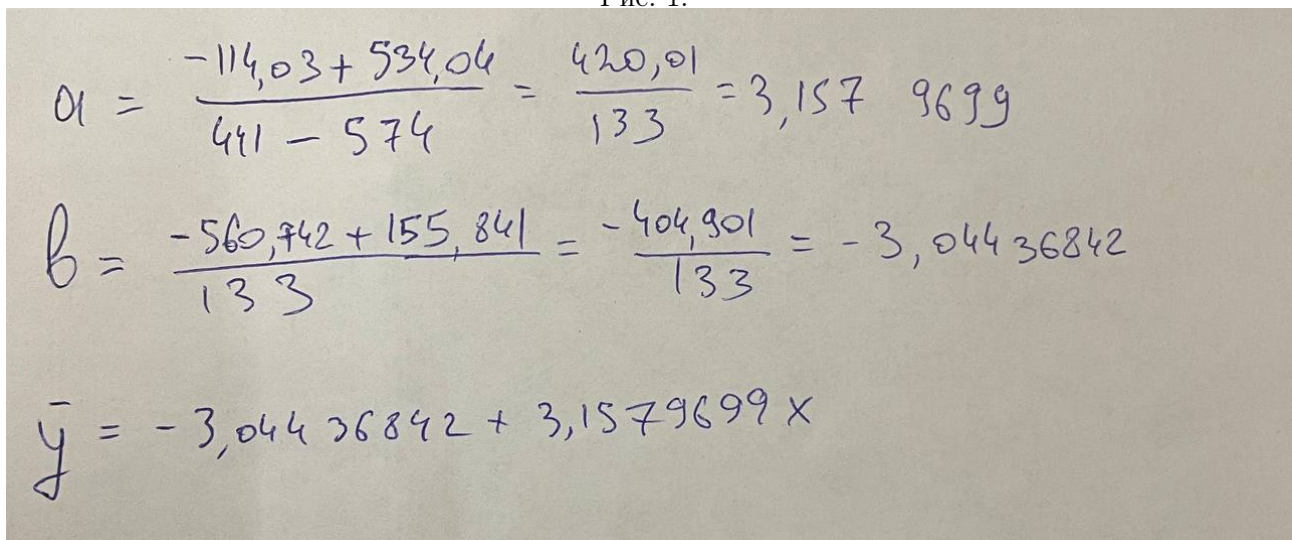 Рис. 1.
a = \frac{-114,03 + 534,04}{441 - 574} = \frac{420,01}{133} = 3,157 9699
b = \frac{-560,742 + 155,841}{133} = \frac{-404,901}{133} = -3,04436842
\bar{y} = -3,04436842 + 3,1579699 x